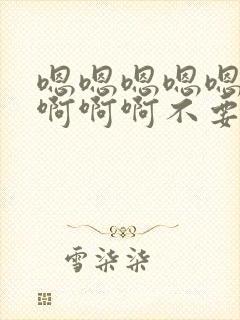 嗯嗯嗯嗯嗯
啊啊啊不要
雪柒柒